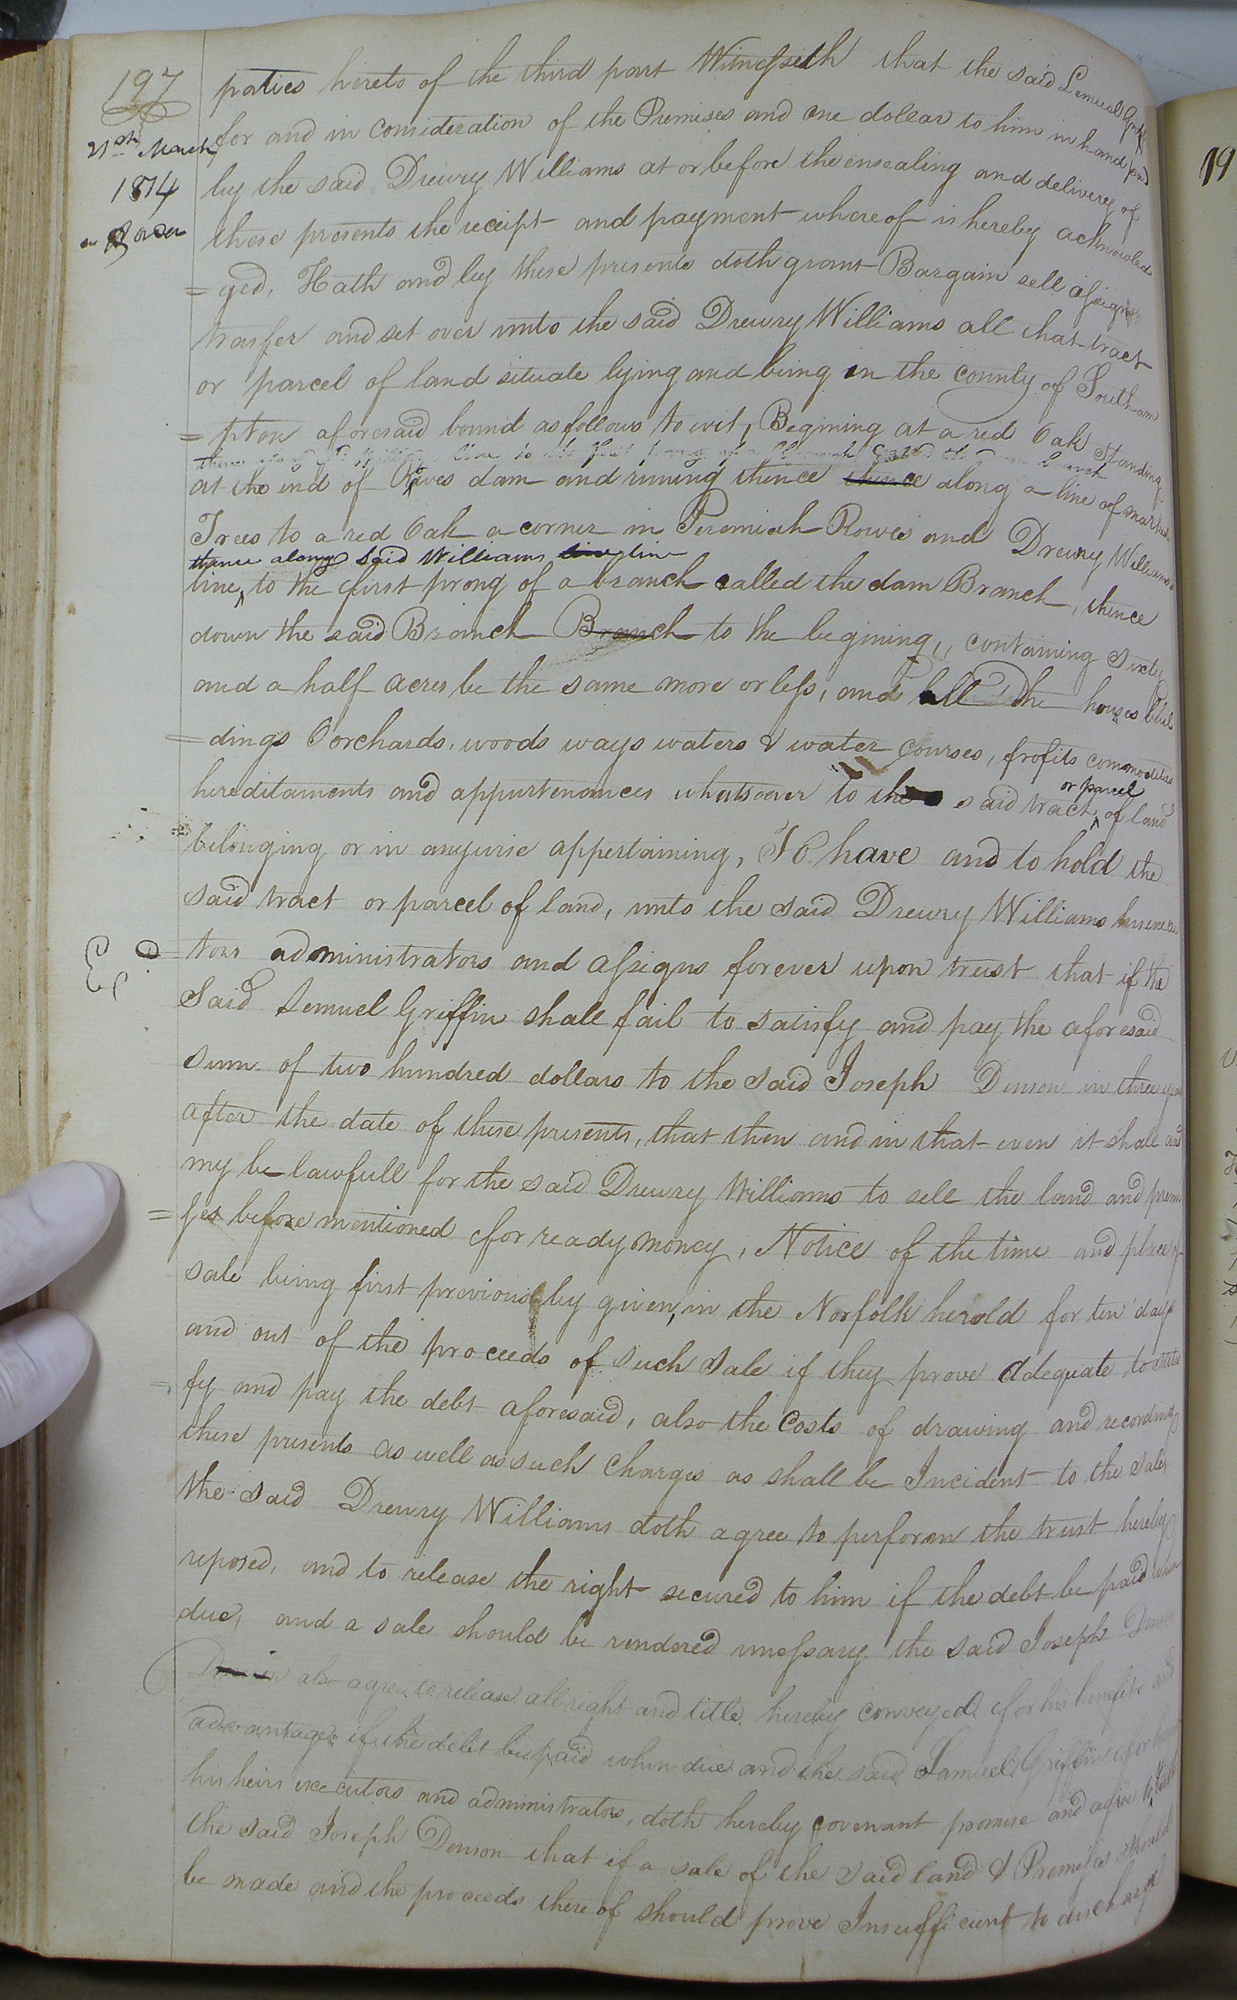 197
21st March
1814
parties hereto of the third part Witnesseth that the said Lemuel Griffin
for and in consideration of the Premises and one dollar to him in hand paid
by the said Drewry Williams at or before the ensealing and delivery of
these presents the receipt and payment whereof is hereby acknowled
= ged, Hath and by these presents doth grant Bargain sell assign
transfer and set over unto the said Drewry Williams all that tract
or parcel of land situate lying and being in the county of Southam
= pton aforesaid bound as follows to wit, Begining at a red Oak Standing
at the end of dam and runing thence thence along a line of marked
Trees to a red Oak a corner in Jeremiah Rowes and Drewry Williams
thence along said Williams line line
line, to the first prong of a branch called the dam Branch, thence
down the said Branch Branch to the begining,, containing Sixty
and a half acres be the same more or less, and all the houses buil
= dings Oorchards, woods ways waters & water courses, profits commodities
or parcel
hereditaments and appurtenances whatsoever to the said tract of land
belonging or in anywise appertaining, To have and to hold the
said tract or parcel of land, unto the said Drewry Williams his execu
= tors administrators and assigns forever upon trust that if the
Said Lemuel Griffin shall fail to satisfy and pay the aforesaid
sum of two hundred dollars to the said Joseph Denson in three years
after the date of these presents, that then and in that even it shall and
my be lawfull for the said Drewry Williams to sell the land and premi
= ses before mentioned for ready money, Notice of the time and place of
sale being first previously given, in the Norfolk herold for ten days
and out of the proceeds of such sale if they prove adequate to satis
= fy and pay the debt aforesaid, also the Costs of drawing and recording
these presents as well as such Charges as shall be Incident to the sale,
the said Drewry Williams doth agree to perform the trust hereby
reposed, and to release the right secured to him if the debt be paid when
due, and a sale should be rendered unessary the said Joseph Denson
Denson also agree to release all right and title hereby conveyed for his benefit and
advantage if the debt be paid when due and the said Lamuel Griffin for himself
his heirs executors and administrators, doth hereby covenant promise and agree to & with
the said Joseph Denson that if a sale of the said land & Premises should
be made and the proceeds there of should prove Insufficient to discharge